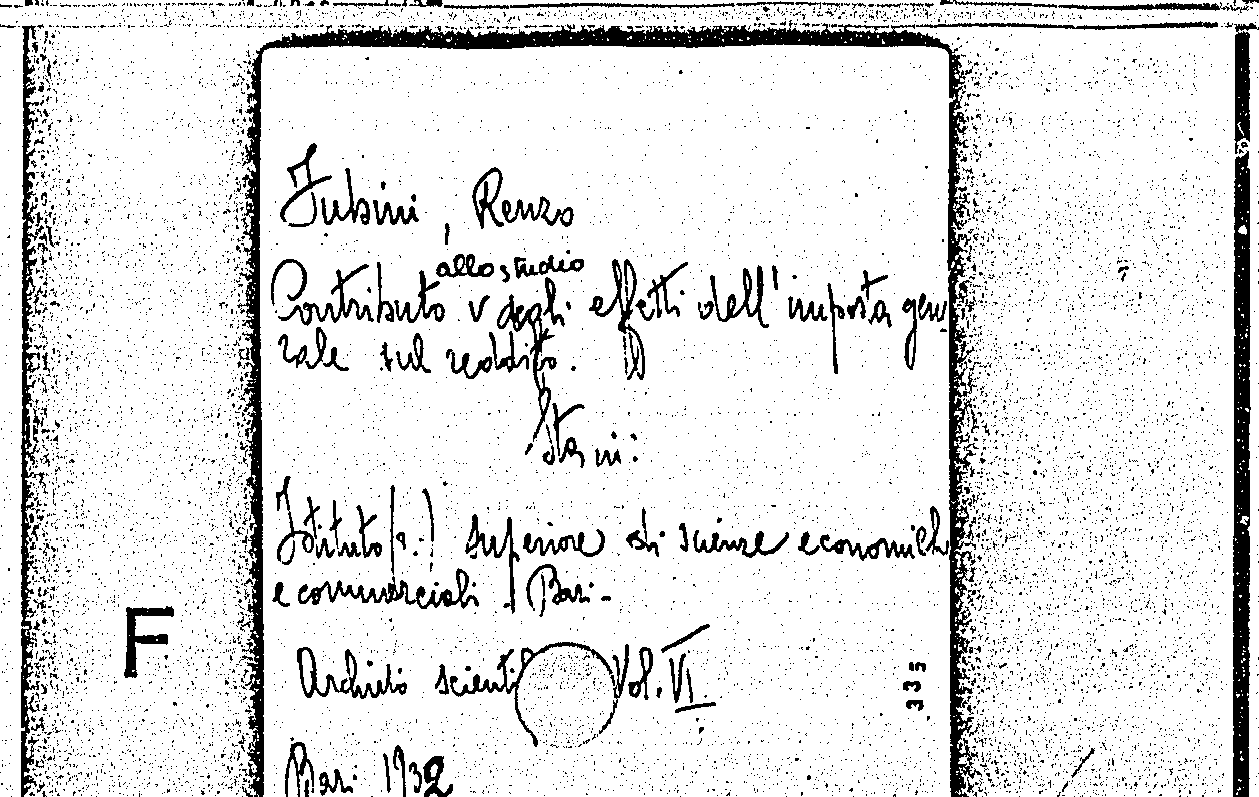 Fubini, Renzo
allo studio
Contributo v degli effetti dell'imposta gene-
rale sul reddito.
Istituto (R.) superiore di scienze economich
e commerciali - Bari -
Archivio scientif Vol. VI
F
335
Bari 1932